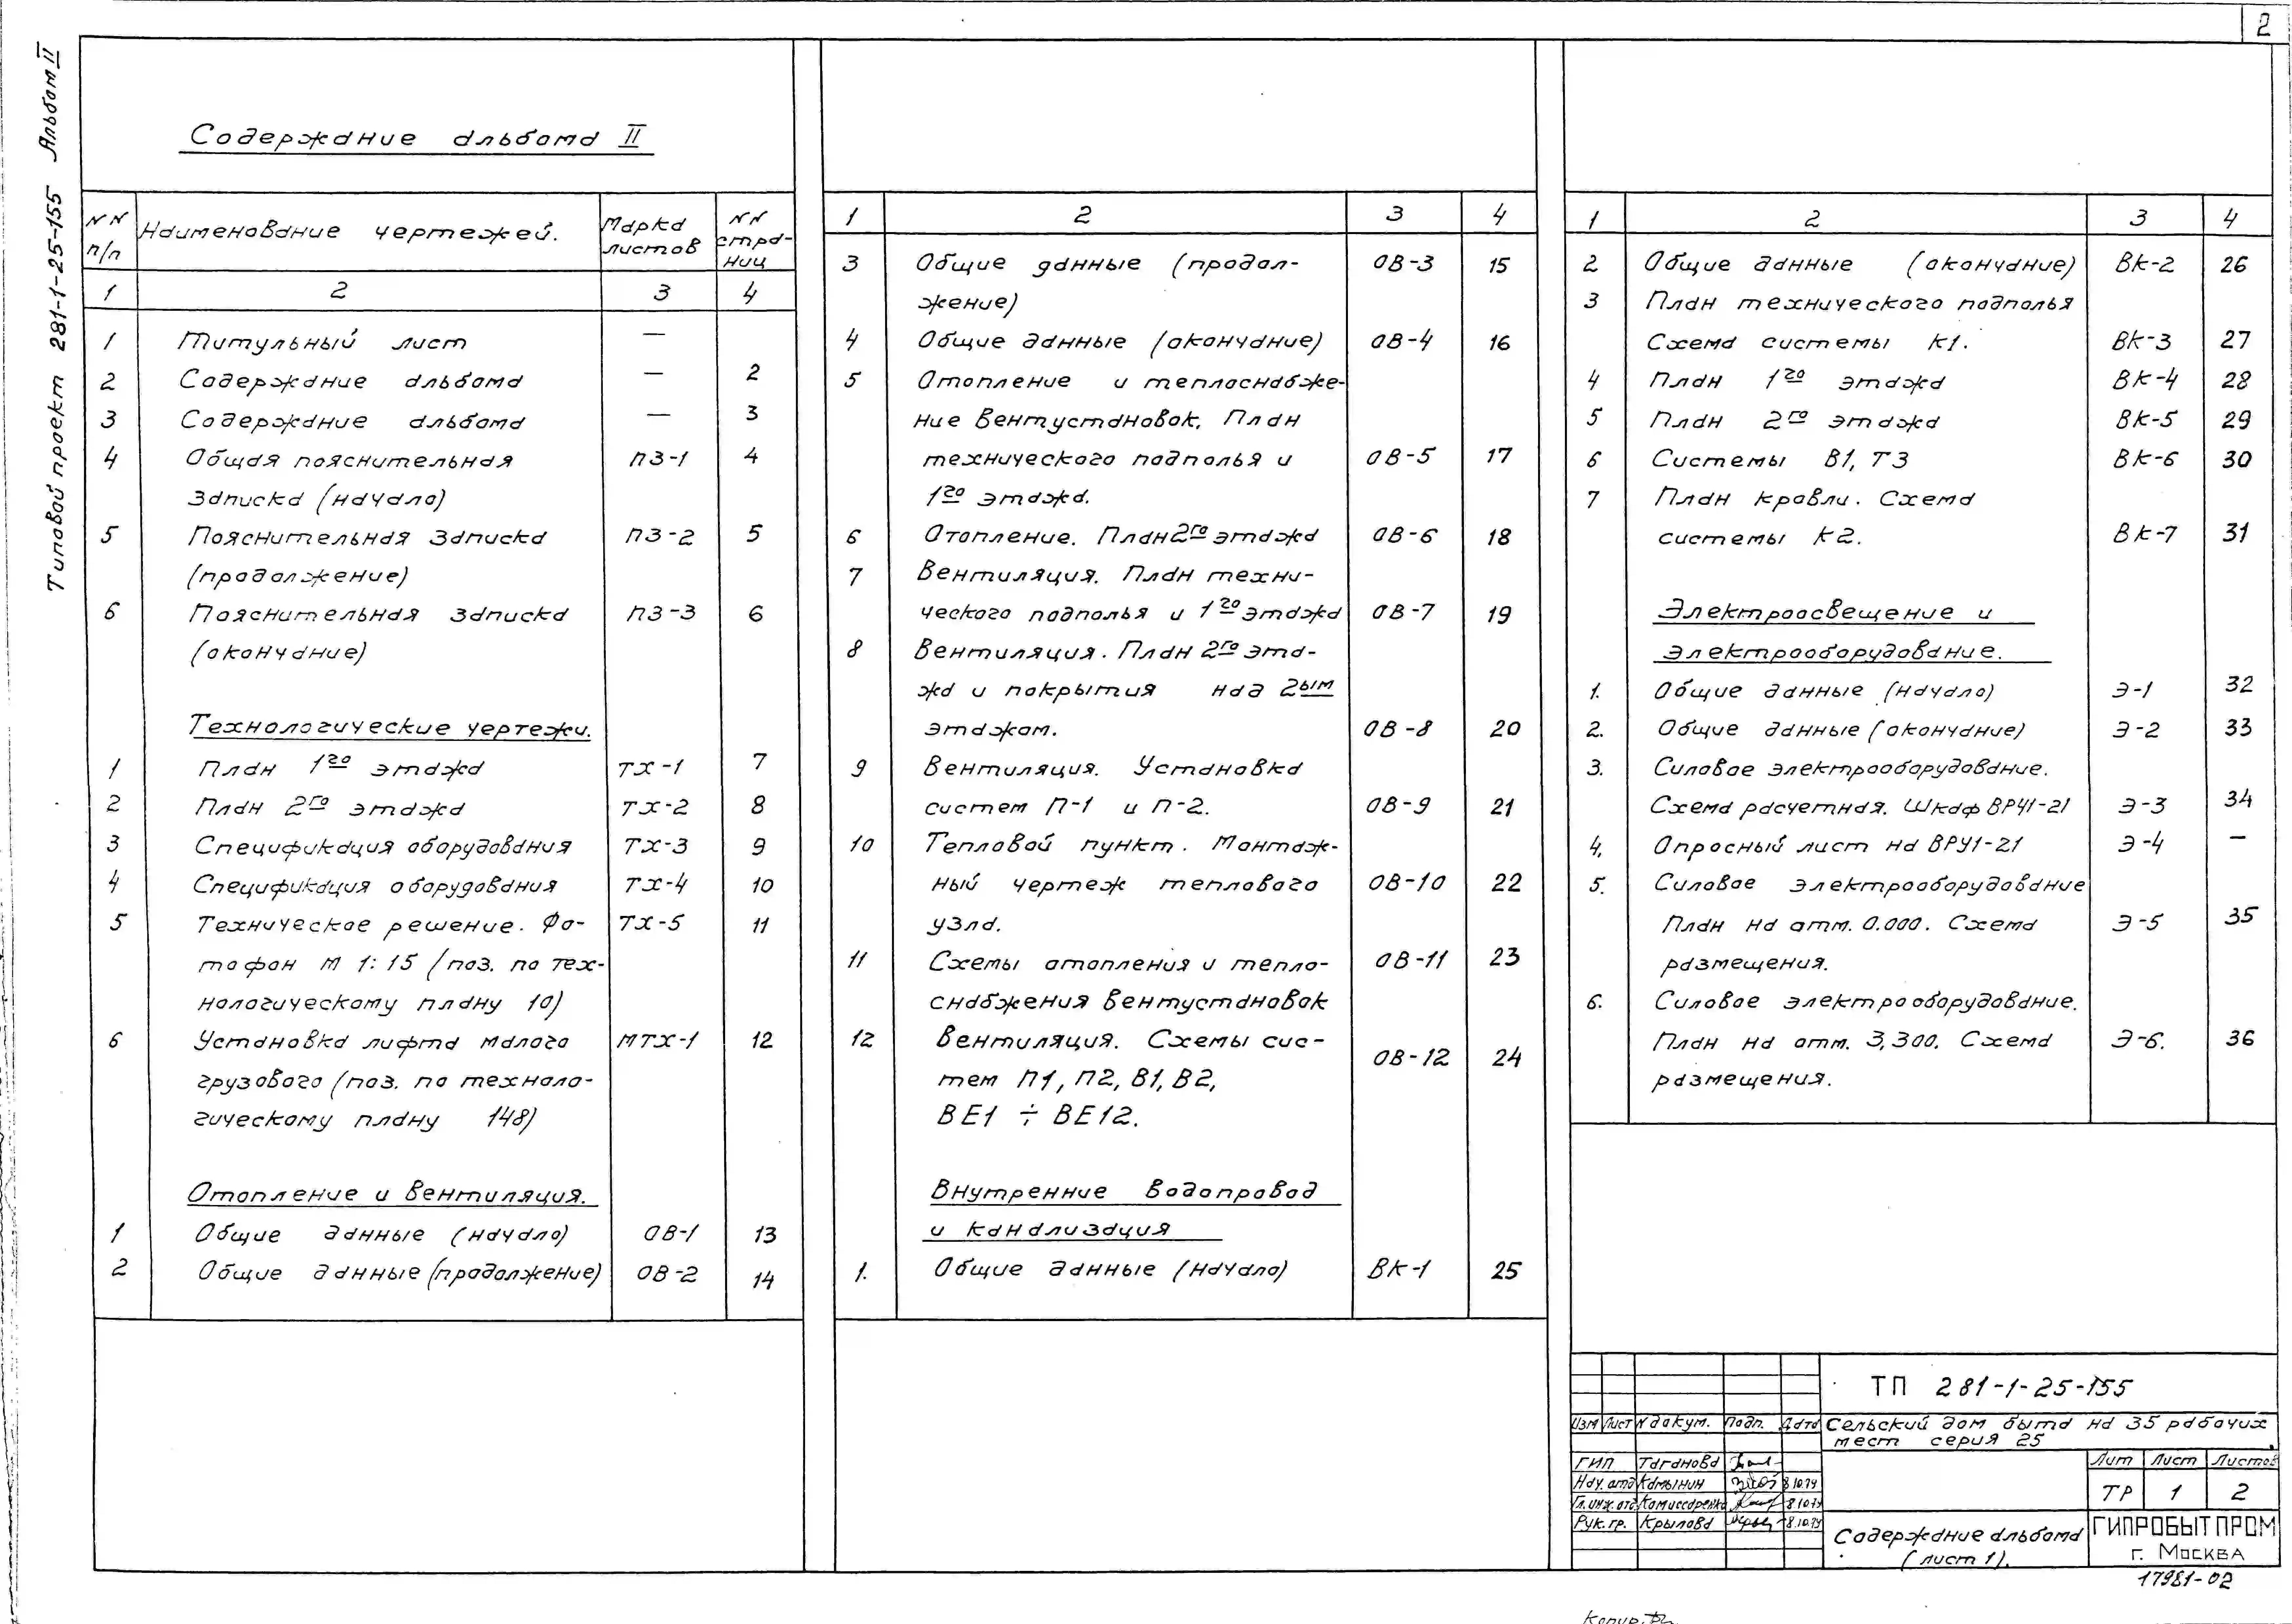 2
Типовой проект 281-1-25-155 Альбом II
Содержание альбома II
NN п/п
Наименование чертежей.
Марка листов
NN страниц
1 2 3 4
1 Титульный лист —
2 Содержание альбома — 2
3 Содержание альбома — 3
4 Общая пояснительная ПЗ-1 4
записка (начало)
5 Пояснительная записка ПЗ-2 5
(продолжение)
6 Пояснительная записка ПЗ-3 6
(окончание)
Технологические чертежи.
1 План 1го этажа ТХ-1 7
2 План 2го этажа ТХ-2 8
3 Спецификация оборудования ТХ-3 9
4 Спецификация оборудования ТХ-4 10
5 Техническое решение. Фо- ТХ-5 11
тофон М 1:15 (поз. по тех-
нологическому плану 10)
6 Установка лифта малого МТХ-1 12
грузового (поз. по техноло-
гическому плану 148)
Отопление и вентиляция.
1 Общие данные (начало) ОВ-1 13
2 Общие данные (продолжение) ОВ-2 14
1 2 3 4
3 Общие данные (продол- ОВ-3 15
жение)
4 Общие данные (окончание) ОВ-4 16
5 Отопление и теплоснабже-
ние вентустановок. План
технического подполья и ОВ-5 17
1го этажа.
6 Отопление. План 2го этажа ОВ-6 18
7 Вентиляция. План техни-
ческого подполья и 1го этажа ОВ-7 19
8 Вентиляция. План 2го эта-
жа и покрытия над 2ым
этажом. ОВ-8 20
9 Вентиляция. Установка
систем П-1 и П-2. ОВ-9 21
10 Тепловой пункт. Монтаж-
ный чертеж теплового ОВ-10 22
узла.
11 Схемы отопления и тепло- ОВ-11 23
снабжения вентустановок
12 Вентиляция. Схемы сис-
тем П1, П2, В1, В2, ОВ-12 24
ВЕ1 ÷ ВЕ12.
Внутренние водопровод
и канализация
1. Общие данные (начало) ВК-1 25
1 2 3 4
2 Общие данные (окончание) ВК-2 26
3 План технического подполья
Схема системы К1. ВК-3 27
4 План 1го этажа ВК-4 28
5 План 2го этажа ВК-5 29
6 Системы В1, Т3 ВК-6 30
7 План кровли. Схема
системы К2. ВК-7 31
Электроосвещение и
электрооборудование.
1. Общие данные (начало) Э-1 32
2. Общие данные (окончание) Э-2 33
3. Силовое электрооборудование.
Схема расчетная. Шкаф ВРУ1-21 Э-3 34
4. Опросный лист на ВРУ1-21 Э-4 —
5. Силовое электрооборудование
План на отм. 0.000. Схема Э-5 35
размещения.
6. Силовое электрооборудование.
План на отм. 3,300. Схема Э-6. 36
размещения.
ТП 281-1-25-155
Изм Лист N докум. Подп. Дата
Сельский дом быта на 35 рабочих
мест серия 25
ГИП Таганова
Нач. отд Камынин
Гл. инж. отд Комиссаренко
Рук. гр. Крылова
Лит Лист Листов
ТР 1 2
Содержание альбома
(лист 1).
ГИПРОБЫТПРОМ
г. Москва
17981-02
Копир.